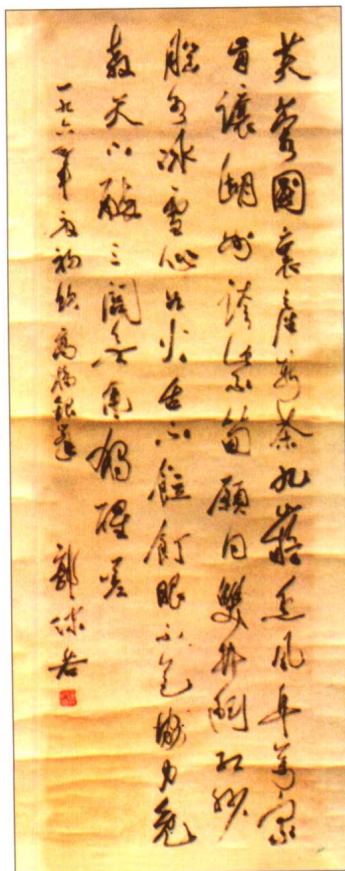 芙蓉國裏產新茶九嶷香風阜萬家
肯讓湖州誇紫筍願同雙井鬥紅紗
腦如冰雪心如火舌不餖飣眼不花協力免
教天下醉三閭無用獨醒嗟
一九六四年夏初飲高橋銀峯
郭沫若